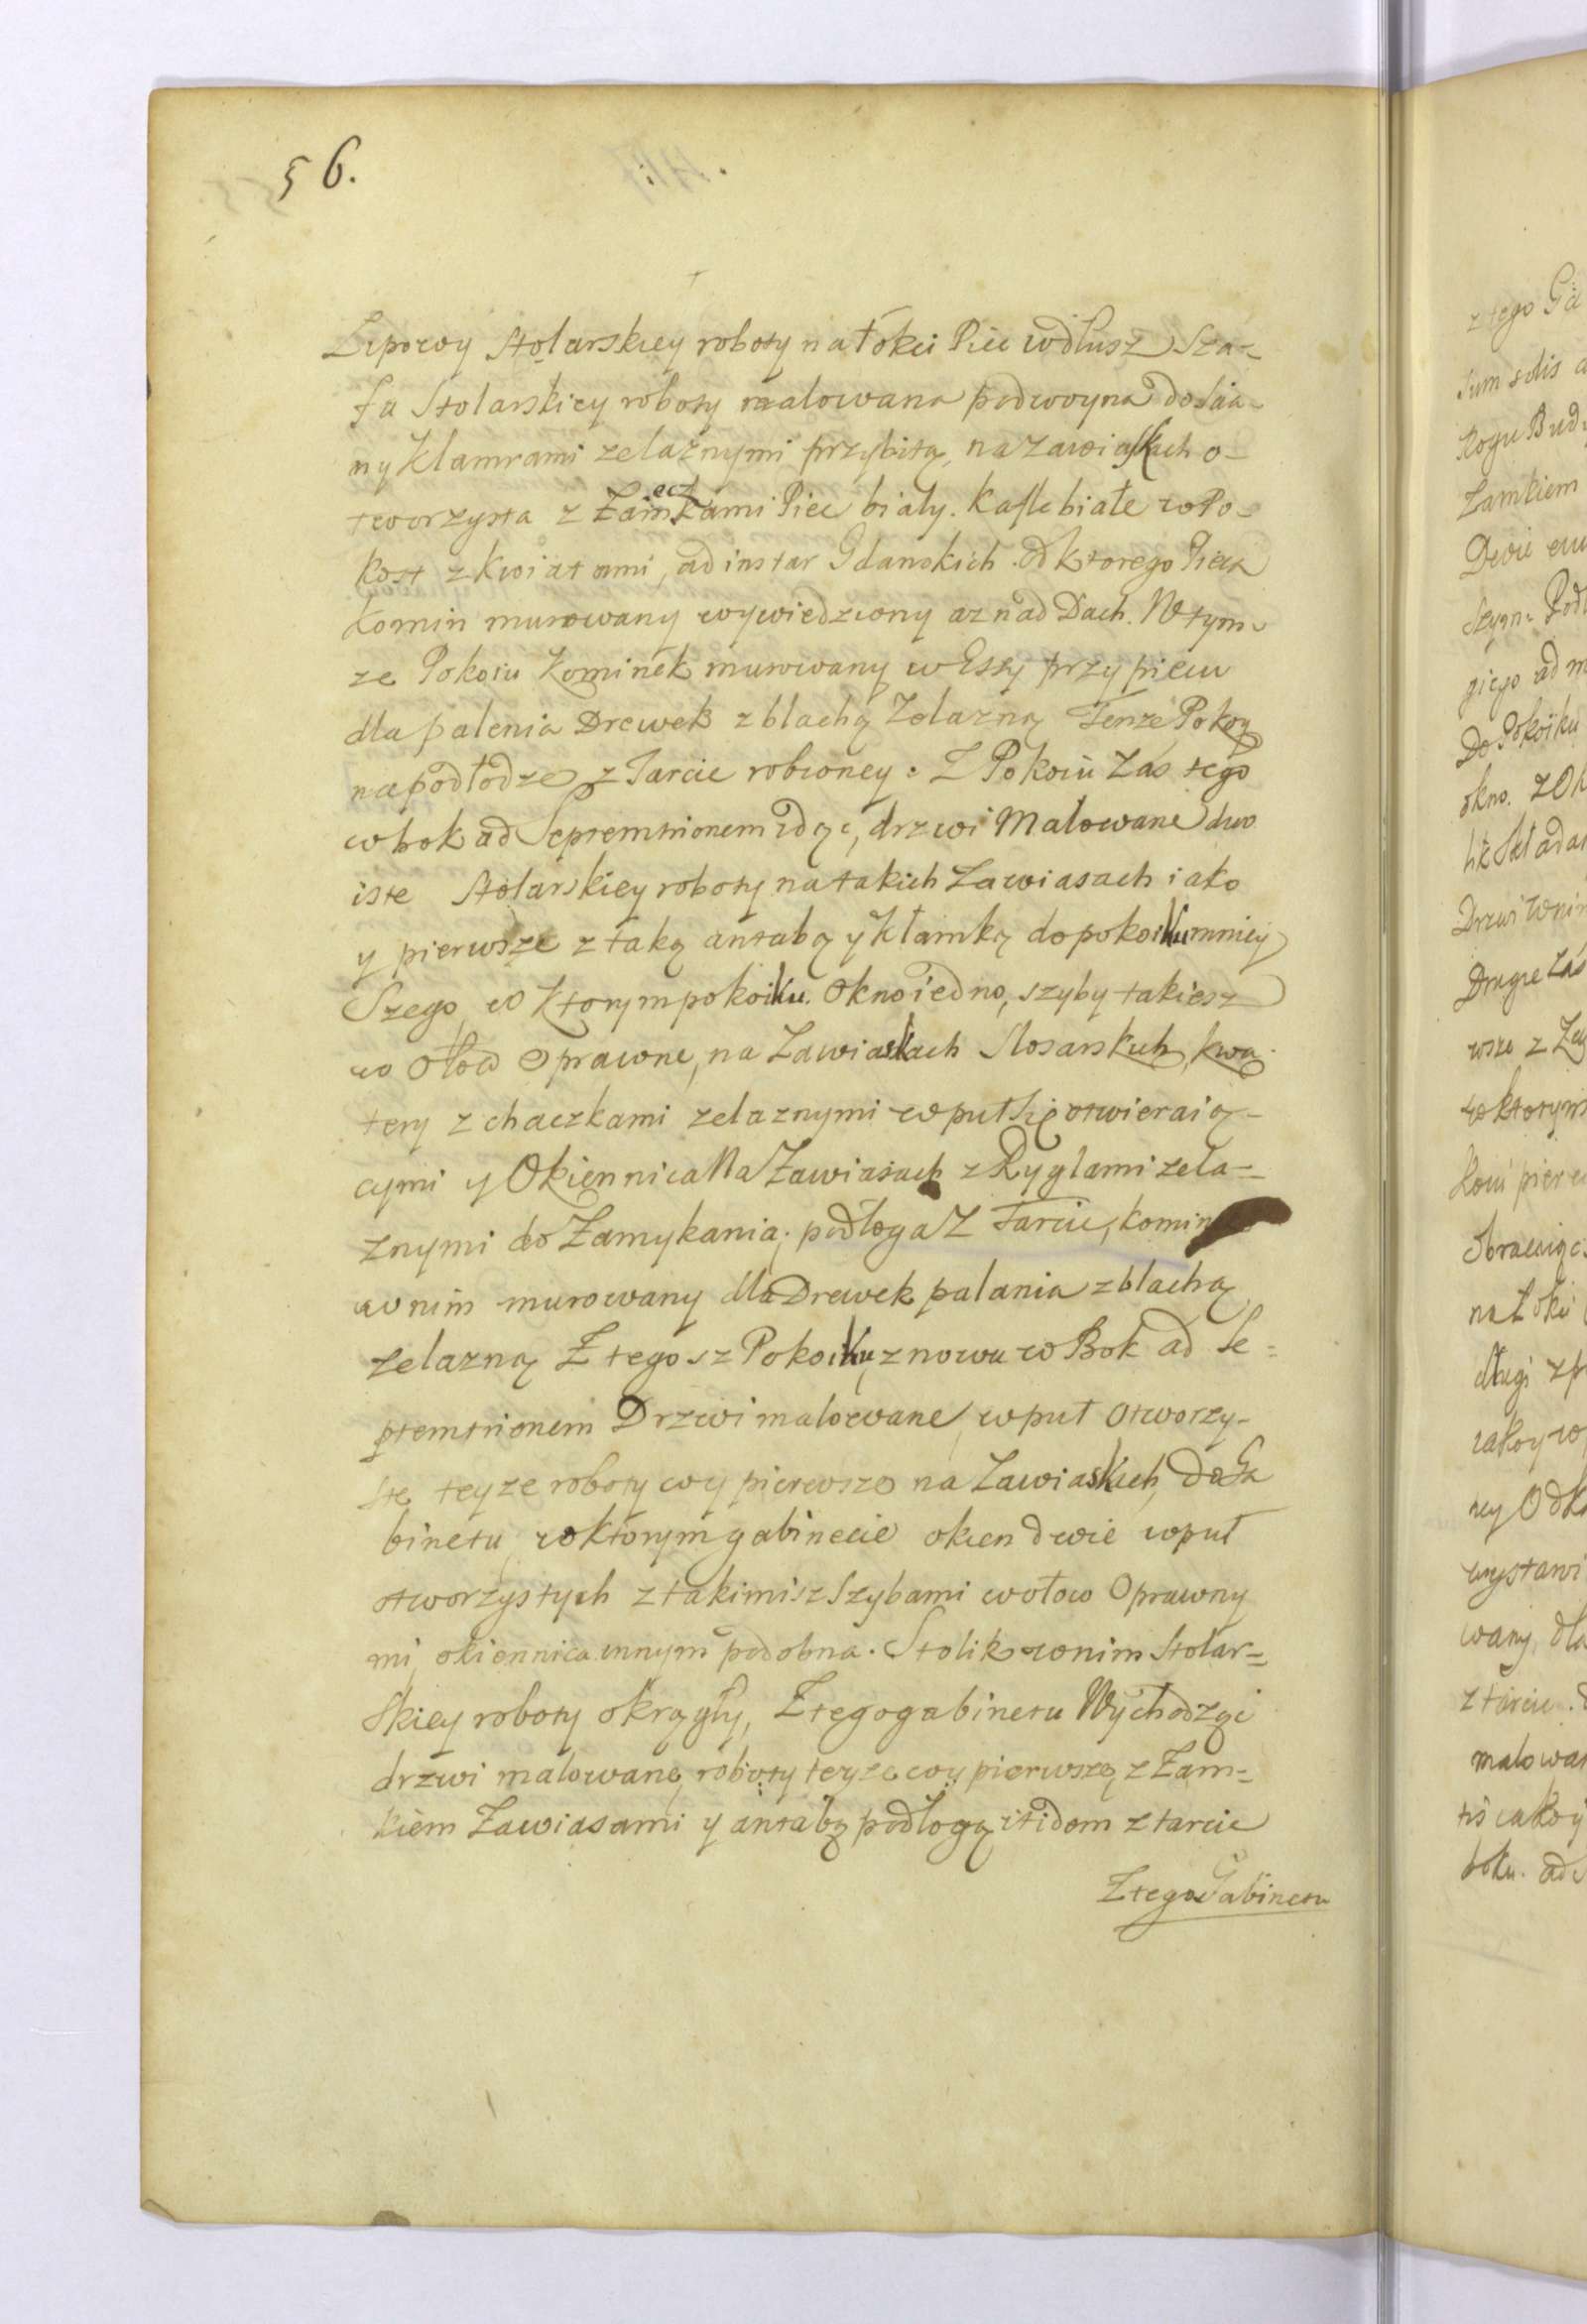 56.
Lipowy Stolarskiey roboty na Łokci Piec wdłusz Sza-
fa Stolarskiey roboty malowana podwoyna do scia-
ny klamrami zelaznymi przybitą, na zawiaskach o-
tworzysta z Zameczkami Piec biały. Kafle białe w Po-
kost z kwiatami, ad instar Gdanskich. Od ktorego Pieca
Komin murowany wywiedziony az nad Dach. W tym-
ze Pokoiu Kominek murowany w Essy przy piecu
dla palenia Drewek z blachą Zelazną Tenze Pokoy
na podłodze z Tarcic robioney. Z Pokoiu Zas tego
w bok ad Septemtrionem idąc, drzwi Malowane dwo
iste Stolarskiey roboty na takich Zawiasach iako
y pierwsze z taką antabą y Kłamką do pokoiku mniey
Szego, w Ktorym pokoiku. Okno iedno, szyby takiesz
w Ołow Oprawne, na Zawiaskach Slosarskich, kwa-
tery z chaczkami zelaznymi w puł się otwieraią-
cymi y Okiennica Na Zawiasach z Ryglami zela-
znymi do Zamykania; podłoga Z Tarcic, Komin
w nim murowany dla Drewek palania z blachą
zelazną Z tegosz Pokoiku znowu w Bok ad Se-
ptemtrionem Drzwi malowane w puł Otworzy-
ste, teyze roboty coy pierwsze na Zawiaskach, do Ga
binetu, w ktorym gabinecie okien dwie w puł
otworzystych z takimisz Szybami w ołow Oprawny
mi, okiennica innym podobna. Stolik w nim Stolar-
Skiey roboty okrągły, Z tego gabinetu Wychodząc
drzwi malowane, roboty teyze coy pierwsze, z Zam-
kiem Zawiasami y antabą podłogą itidem z tarcic
Z tego Gabinetu
z tego Ga
Rogu Bud
Zamkiem
Dwie
giego ad m
Do Pokoiku
okno. z Ok
Drugie Zas
w ktorym
na Łokci
długi z p
wystawi
wany, dla
z tarcic.
malowan
boku. ad